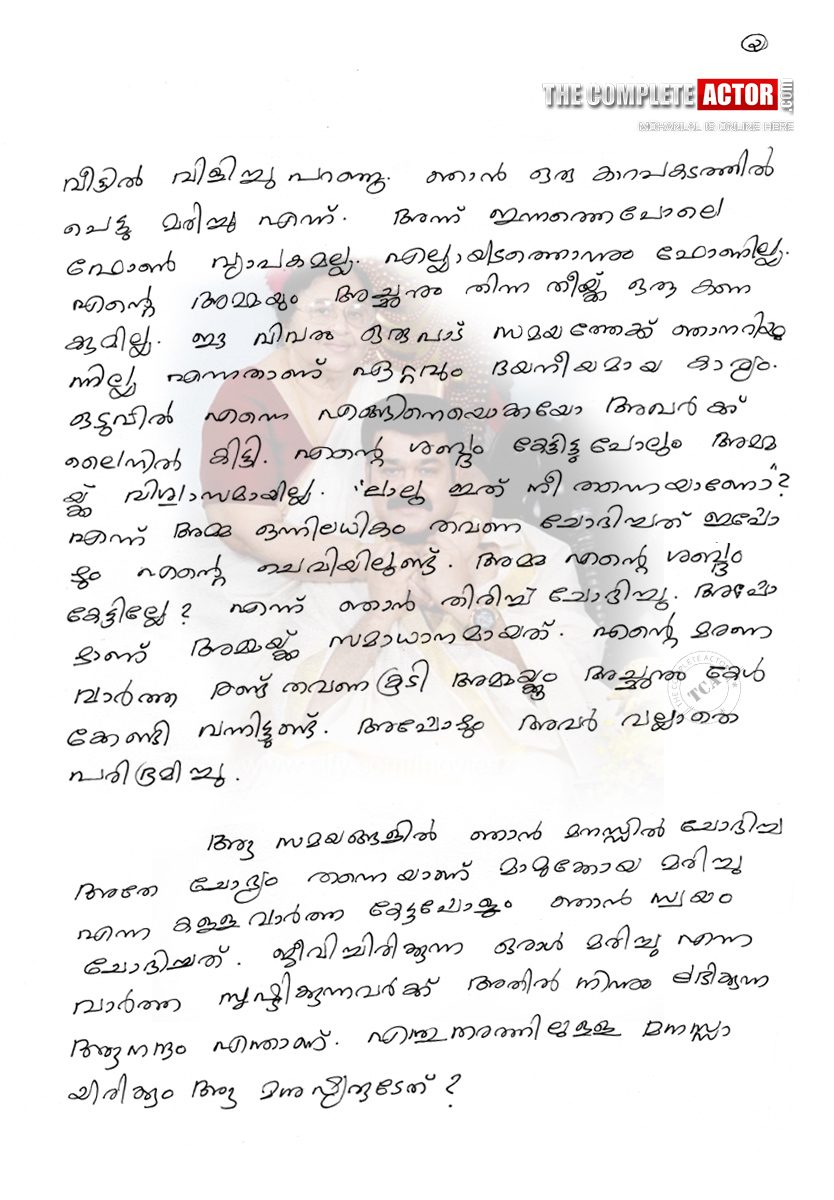 ൨
THE COMPLETE ACTOR .com
MOHANLAL IS ONLINE HERE
വീട്ടിൽ വിളിച്ചു പറഞ്ഞു. ഞാൻ ഒരു കാറപകടത്തിൽ
പെട്ടു മരിച്ചു എന്ന്. അന്ന് ഇന്നത്തെപോലെ
ഫോൺ വ്യാപകമല്ല. എല്ലായിടത്തൊന്നും ഫോണില്ല.
എന്റെ അമ്മയും അച്ഛനും തിന്ന തീയ്ക്ക് ഒരു കണ
ക്കുമില്ല. ഈ വിവരം ഒരുപാട് സമയത്തേക്ക് ഞാനറിയു
ന്നില്ല എന്നതാണ് ഏറ്റവും ദയനീയമായ കാര്യം.
ഒടുവിൽ എന്നെ എങ്ങിനെയൊക്കയോ അവർക്ക്
ലൈനിൽ കിട്ടി. എന്റെ ശബ്ദം കേട്ടിട്ടുപോലും അമ്മ
യ്ക്ക് വിശ്വാസമായില്ല. "ലാലു ഇത് നീ തന്നെയാണോ"?
എന്ന് അമ്മ ഒന്നിലധികം തവണ ചോദിച്ചത് ഇപ്പോ
ഴും എന്റെ ചെവിയിലുണ്ട്. അമ്മ എന്റെ ശബ്ദം
കേട്ടില്ലേ? എന്ന് ഞാൻ തിരിച്ച് ചോദിച്ചു. അപ്പോ
ഴാണ് അമ്മയ്ക്ക് സമാധാനമായത്. എന്റെ മരണ
വാർത്ത രണ്ട് തവണകൂടി അമ്മയ്ക്കും അച്ഛനും കേൾ
ക്കേണ്ടി വന്നിട്ടുണ്ട്. അപ്പോഴും അവർ വല്ലാതെ
പരിഭ്രമിച്ചു.
THE COMPLETE ACTOR
TCA
ആ സമയങ്ങളിൽ ഞാൻ മനസ്സിൽ ചോദിച്ച
അതേ ചോദ്യം തന്നെയാണ് മാമുക്കോയ മരിച്ചു
എന്ന കള്ളവാർത്ത കേട്ടപ്പോളും ഞാൻ സ്വയം
ചോദിച്ചത്. ജീവിച്ചിരിക്കുന്ന ഒരാൾ മരിച്ചു എന്ന
വാർത്ത സൃഷ്ടിക്കുന്നവർക്ക് അതിൽ നിന്നും ലഭിക്കുന്ന
ആനന്ദം എന്താണ്. എന്തുതരത്തിലുള്ള മനസ്സാ
യിരിക്കും ആ മനുഷ്യരുടേത്?